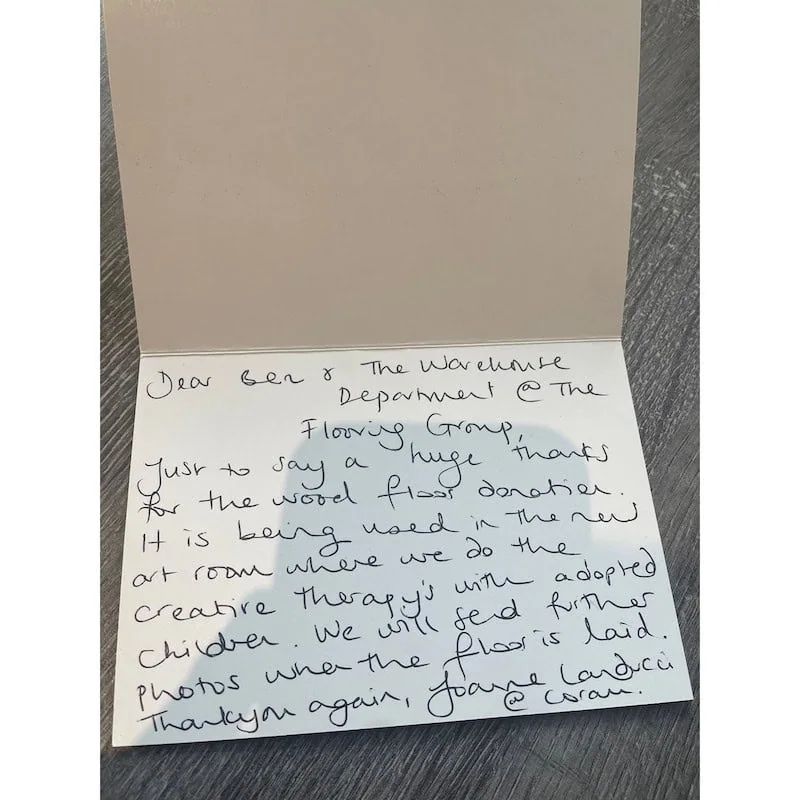 Dear Ben & The Warehouse
Department @ The
Flooring Group,
Just to say a huge thanks
for the wood floor donation.
It is being used in the new
art room where we do the
creative therapy's with adopted
children. We will send further
photos when the floor is laid.
Thankyou again, Joanne Landucci
@ Coram.